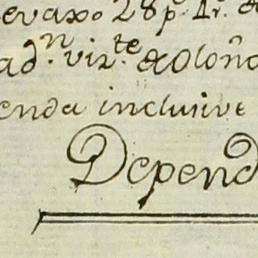 evaxo 28 p.^s 1r. d
ad.^n vir.^te d Oloña
enda inclusive
Depend